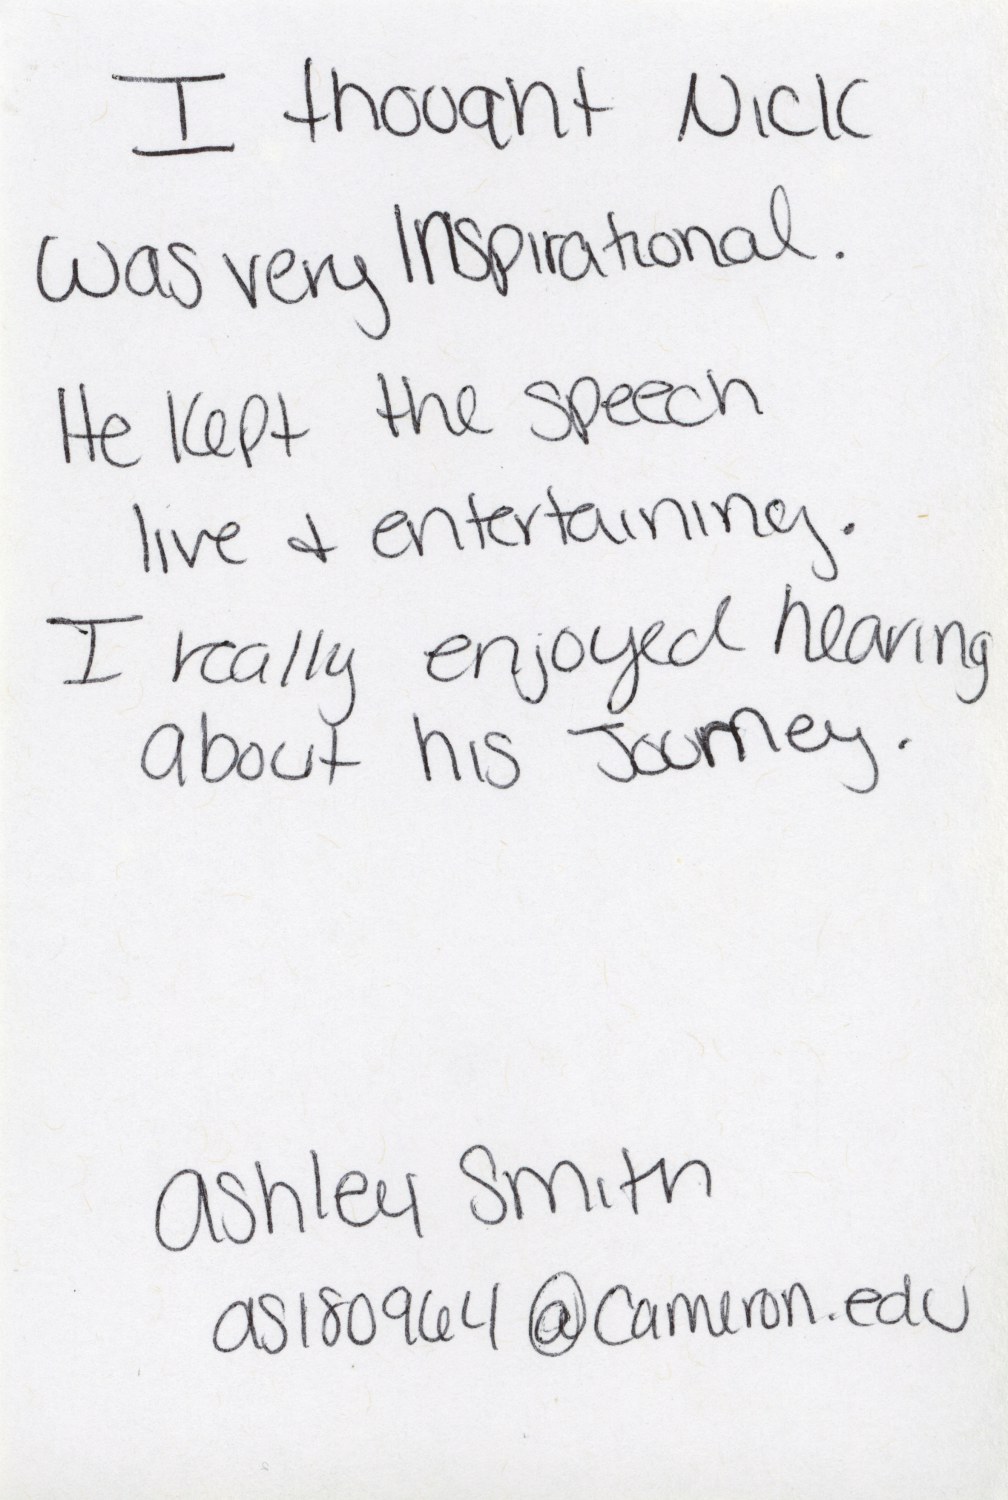 I thouqht Nick
was very Inspirational.
He kept the speech
live & entertaining.
I really enjoyed hearing
about his Journey.
ashley Smith
as180964@cameron.edu